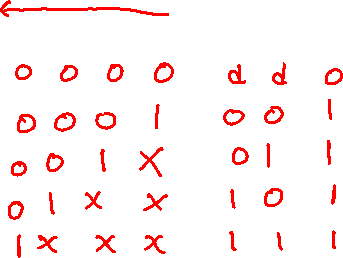 0 0 0 0 d d 0
0 0 0 1 0 0 1
0 0 1 X 0 1 1
0 1 X X 1 0 1
1 X X X 1 1 1